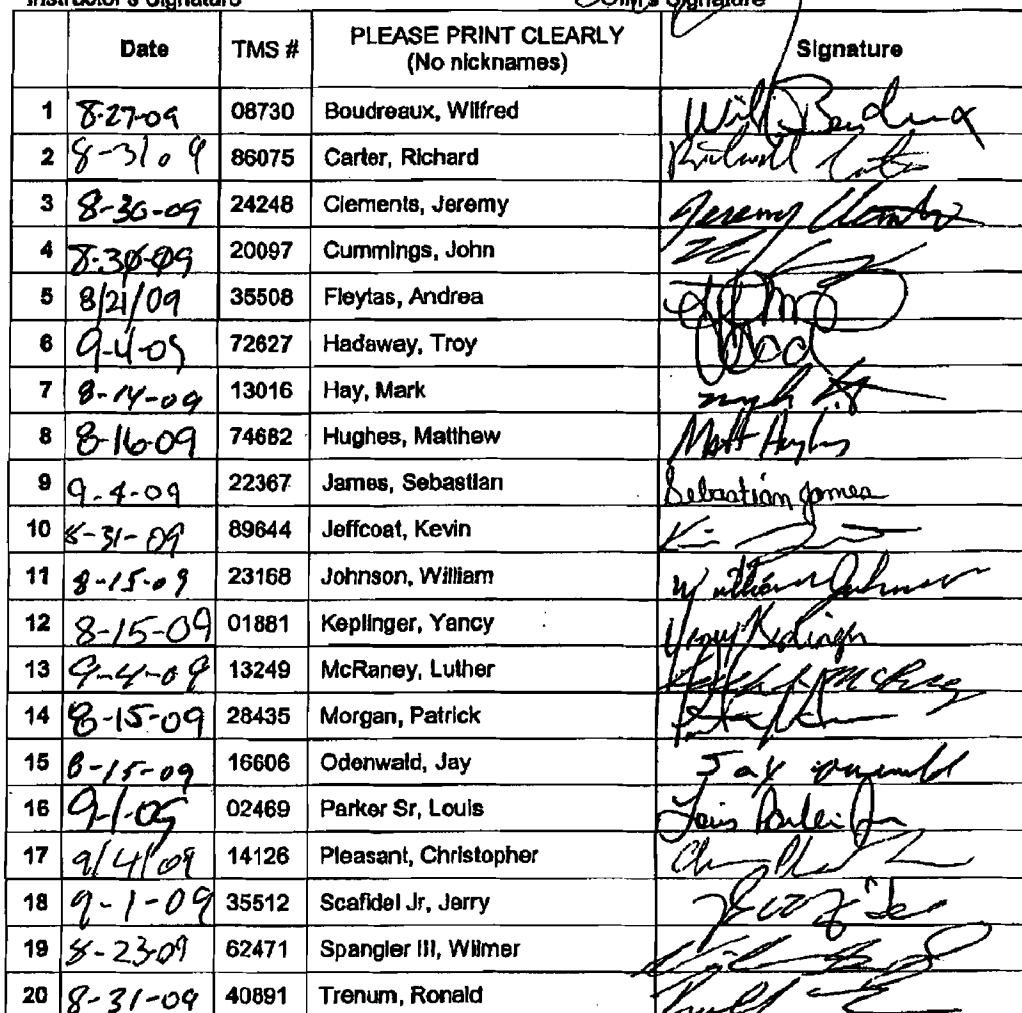 Instructor's Signature Signature
Date TMS # PLEASE PRINT CLEARLY Signature
(No nicknames)
1 8-27-09 08730 Boudreaux, Wilfred
2 8-31-09 86075 Carter, Richard
3 8-30-09 24248 Clements, Jeremy Jeremy
4 8-30-09 20097 Cummings, John
5 8/21/09 35508 Fleytas, Andrea
6 9-4-09 72627 Hadaway, Troy
7 8-14-09 13016 Hay, Mark
8 8-16-09 74682 Hughes, Matthew Matt Hughes
9 9-4-09 22367 James, Sebastian Sebastian James
10 8-31-09 89644 Jeffcoat, Kevin
11 8-15-09 23168 Johnson, William William Johnson
12 8-15-09 01881 Keplinger, Yancy Yancy Keplinger
13 9-4-09 13249 McRaney, Luther
14 8-15-09 28435 Morgan, Patrick
15 8-15-09 16606 Odenwald, Jay Jay
16 9-1-09 02469 Parker Sr, Louis
17 9/4/09 14126 Pleasant, Christopher
18 9-1-09 35512 Scafidel Jr, Jerry
19 8-23-09 62471 Spangler III, Wilmer
20 8-31-09 40891 Trenum, Ronald